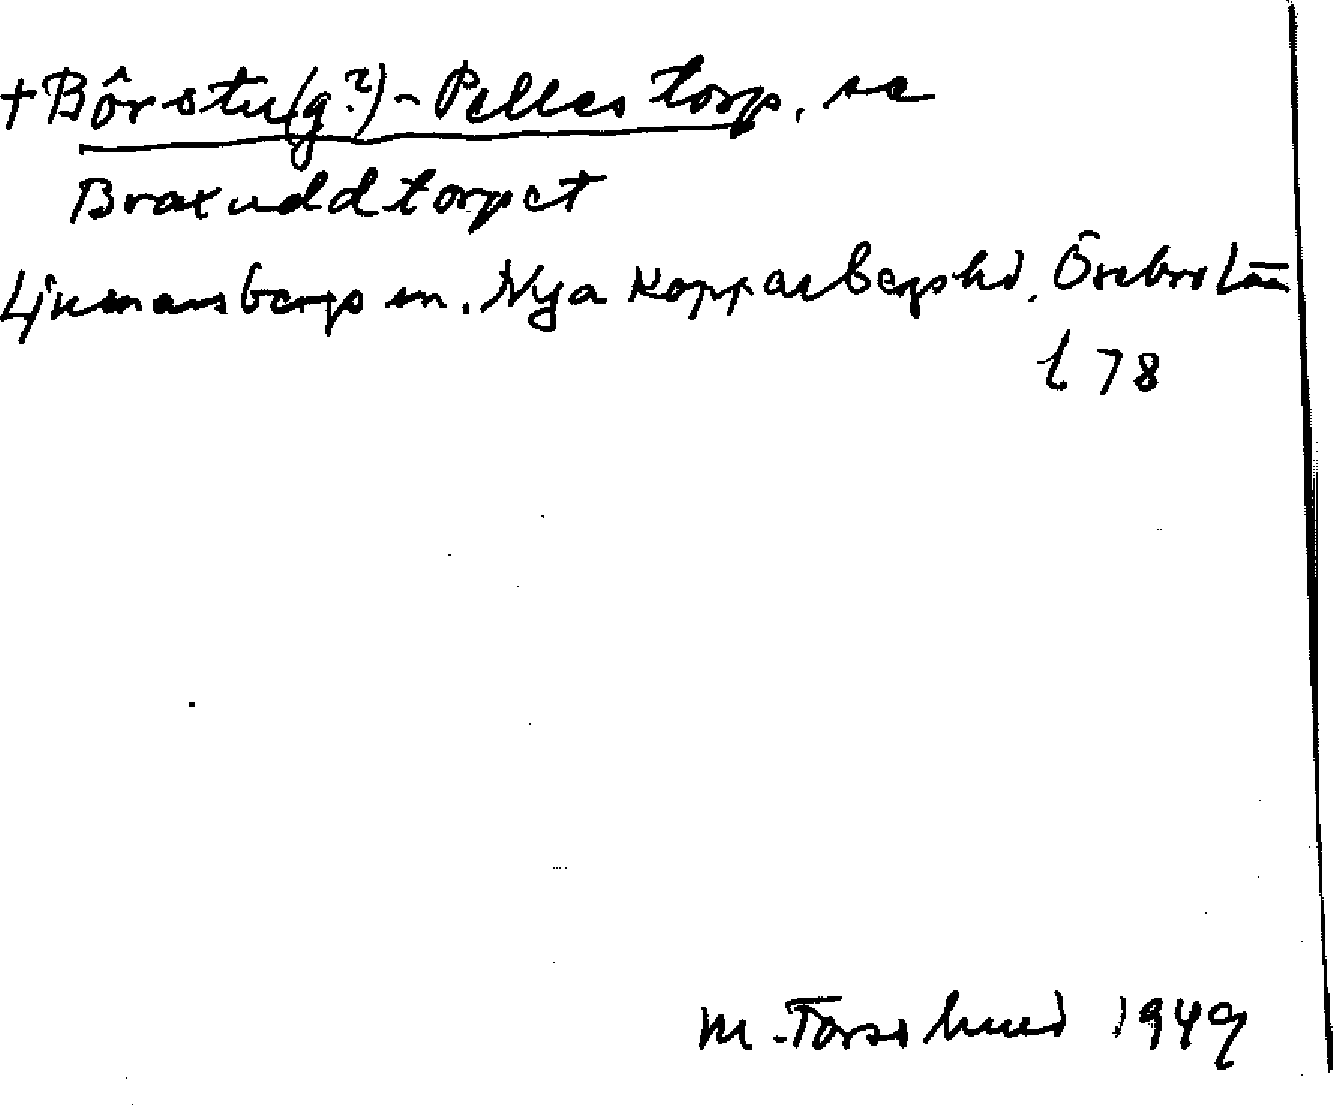 + Börstu(g?)-Pelles torp, se
Braxuddtorpet
Ljusnarsbergs sn. Nya Kopparbergs hd. Örebro län
l 78
M. Torslund 1949